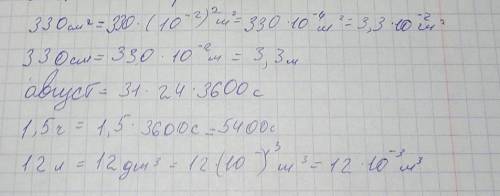 330см² = 330·(10⁻²)²м² = 330·10⁻⁴м² = 3,3·10⁻²м²
330см = 330·10⁻²м = 3,3м
Август = 31·24·3600с
1,5ч = 1,5·3600с = 5400с
12л = 12дм³ = 12(10⁻¹)³м³ = 12·10⁻³м³